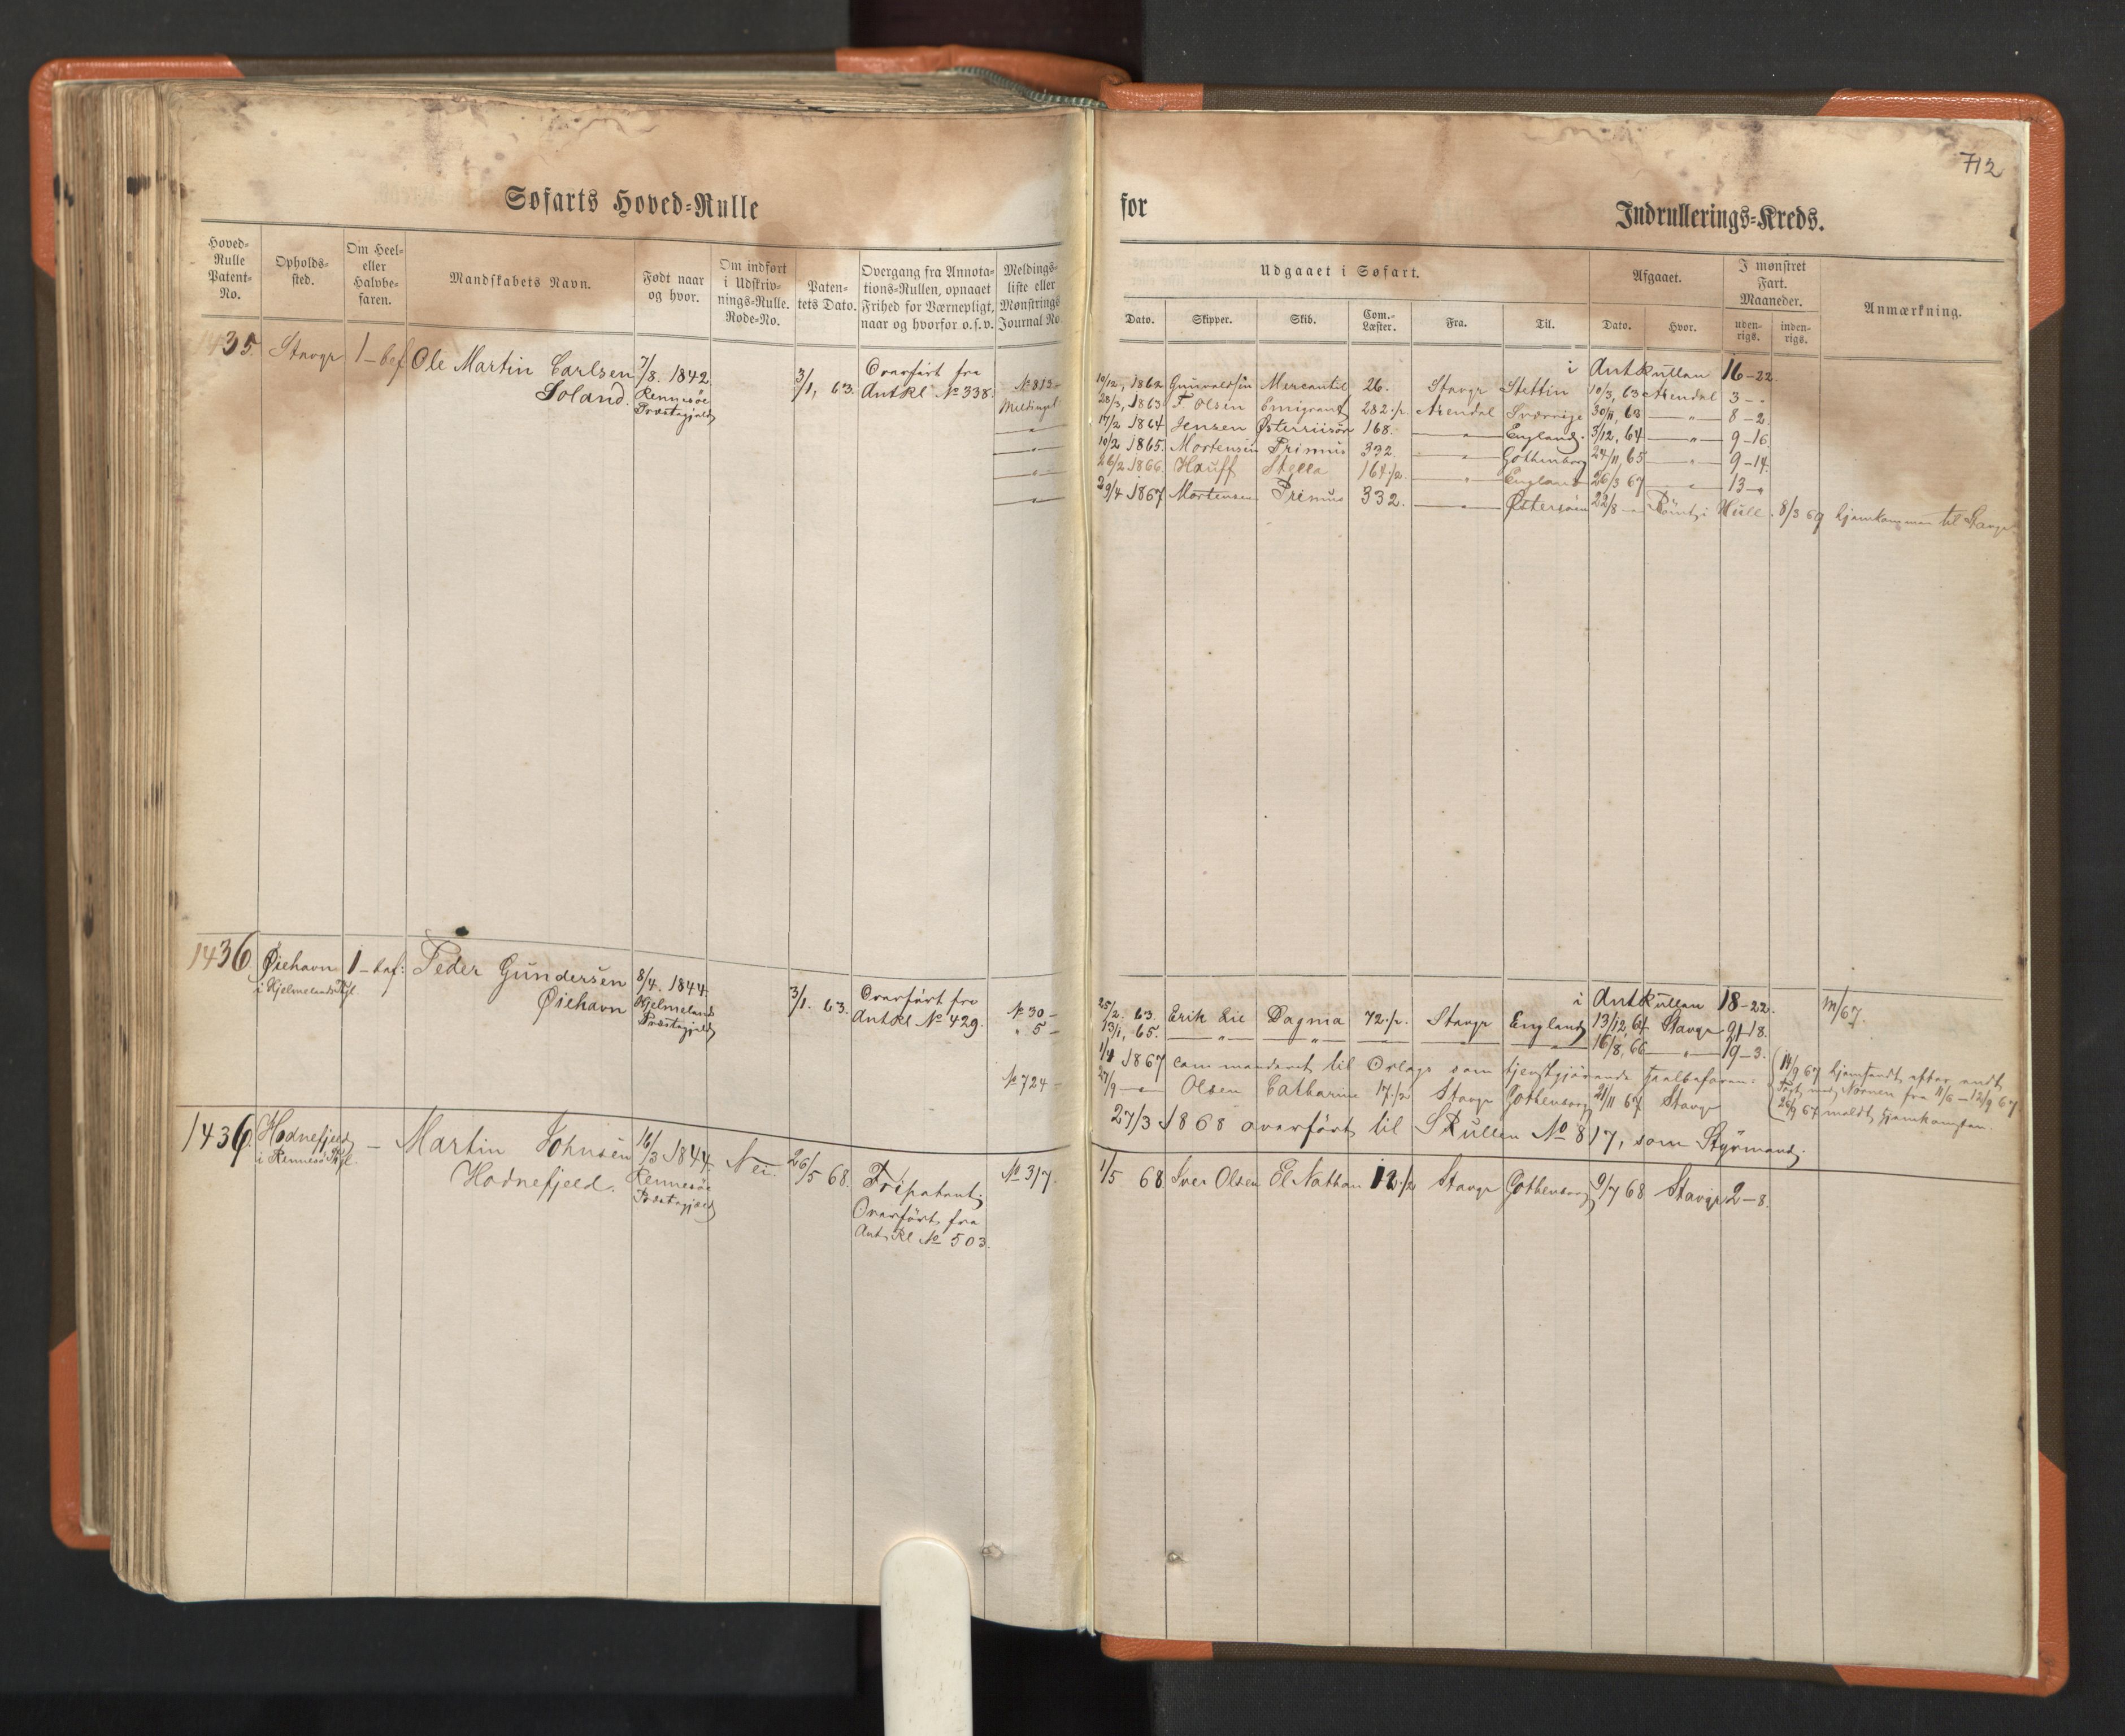 712
Søfarts Hoved-Rulle
for
Indrullerings-Kreds.
Hoved-Rulle Patent-No.
Opholds-sted.
Om Heel- eller Halvbe-faren.
Mandskabets Navn.
Født naar og hvor.
Om indført i Udskriv-nings-Rulle. Rode-No.
Paten-tets Dato.
Overgang fra Annota-tions-Rullen, opnaaet Frihed for Værnepligt, naar og hvorfor o. s. v.
Meldings-liste eller Mønstrings Journal No.
Udgaaet i Søfart.
Afgaaet.
I mønstret Fart. Maaneder.
Anmærkning.
Dato. Skipper. Skib. Com.-Læster. Fra. Til. Dato. Hvor. uden-rigs. inden-rigs.
1435. Stavgr 1 - bef Ole Martin Carlsen 7/8. 1842. 3/1, 63. Overført fra
Soland. Rennesøe AntRl № 338. № 813
Præstegjeld Meldingsl.
i AntRullen 16-22.
10/12, 1862 Gunvaldsen Mercantil 26. Stavgr Stettin 10/3, 63 Arendal 3 - "
28/3, 1863 T. Olsen Emigrant 282 1/2. Arendal Sverrige 30/11, 63 — " 8-2.
17/2 1864 Jensen Østerriisøer 168. — " England 3/12, 64 — " 9-16.
10/2 1865. Mortensen Primus 332. — " Gothenborg 24/11, 65 — " 9-14.
26/2 1866. Hauff Stella 164 1/2. — " England 26/3 67 — " 13-"
29/4 1867 Mortensen Primus 332. — " Østersøen 22/8 — Rømt i Hull. 8/3 69 hjemkommen til Stavgr
1436. Øiehavn 1 - bef: Peder Gundersen 8/4. 1844. 3/1. 63. Overført fra
i Hjelmelands Pgl. Øiehavn Hjelmelands AntRl № 429. № 30 -
Præstegjeld " 5 -
№ 724 -
i AntRullen 18-22.
25/2. 63. Erik Lie Dagma 72 1/2. Stavgr England 13/12, 64 Stavgr 21-18.
13/1, 65. — " — " — " — " — " 16/8, 66 — " 19-3.
1/4 1867 commanderet til Orlogs som tjenstgjørende heelbefaren:
14/9 67 hjemsendt efter endt
Togt med Nornen fra 11/6 - 12/9 67.
26/9 67 meldt hjemkomsten.
27/9 — Olsen Catharine 17 1/2 Stavgr Gothenborg 21/11 67 Stavgr
27/3 1868 overført til SRullen № 817, som Styrmand.
1436. Hodnefjeld — Martin Johnsen 16/3 1844. Nei. 26/5 68. Fripatent. № 317.
i Rennesø Pgl. Hodnefjeld. Rennesøe Overført fra
Præstegjeld Ant. Rl № 503.
1/5 68. Iver Olsen El Nathan 12 1/2 Stavgr Gothenborg 9/7 68 Stavgr 2-8.